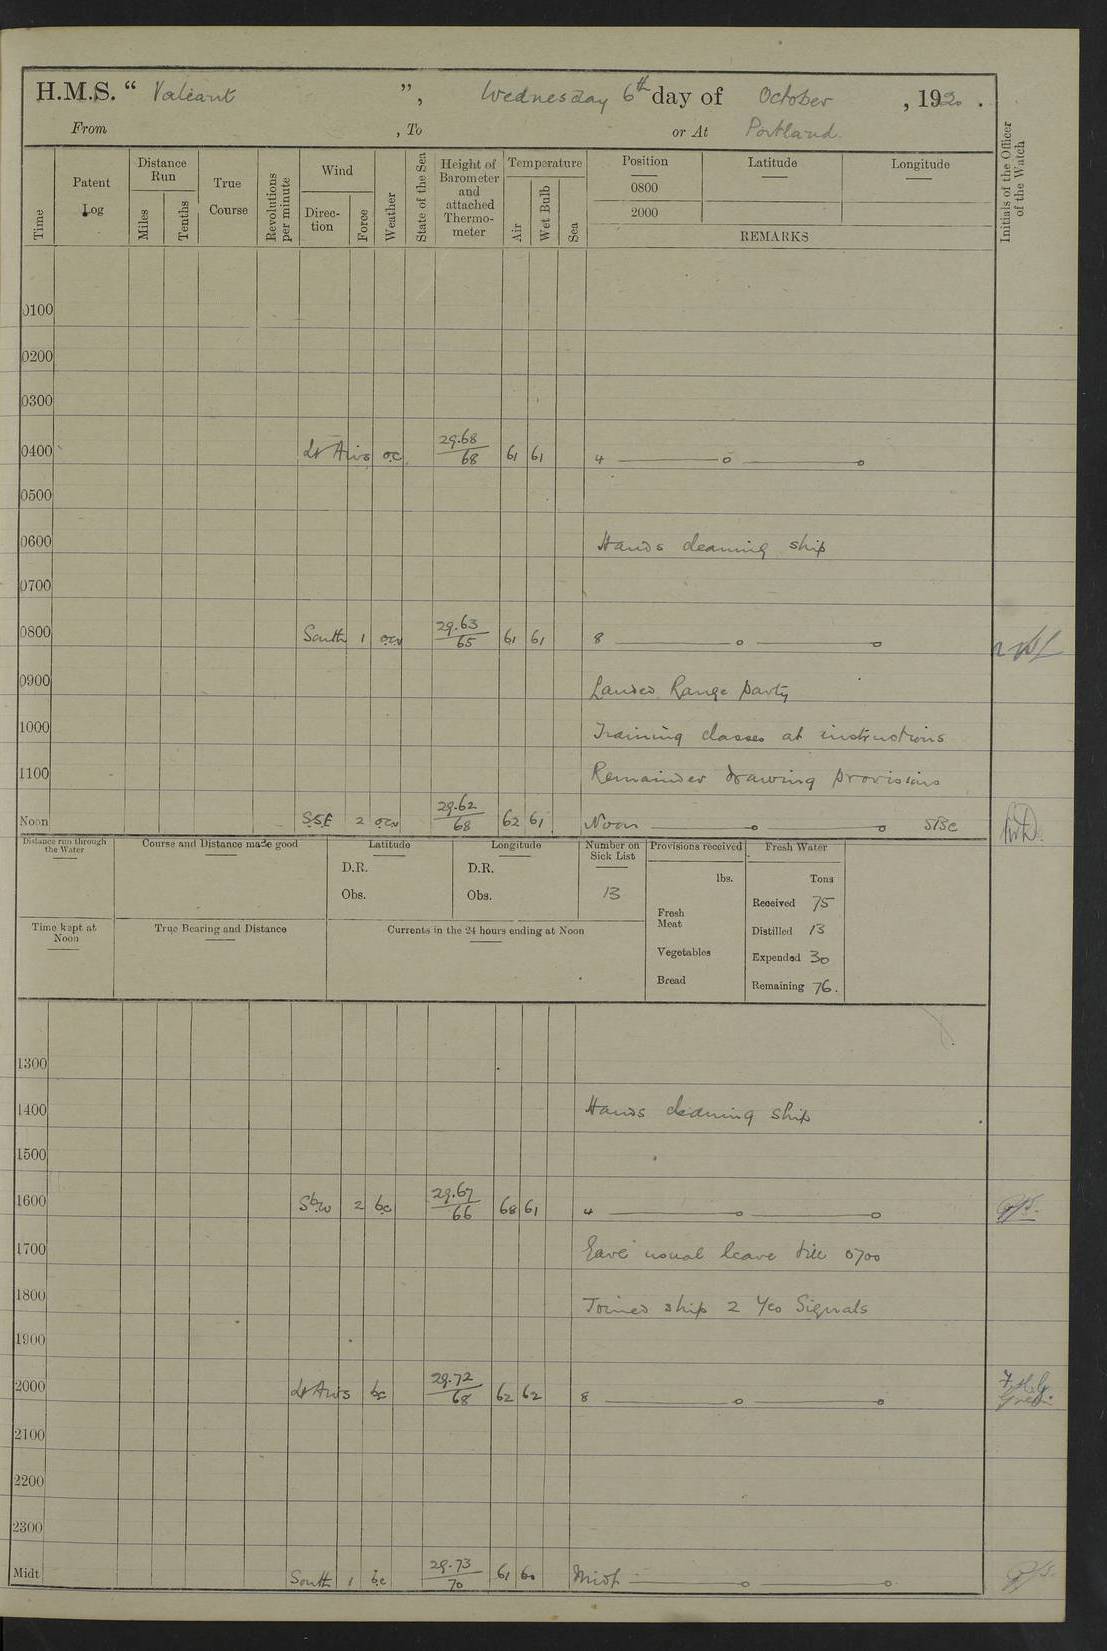 H.M.S. “ Valiant ”, Wednesday 6th day of October , 1920 .
From , To or At Portland.
Time
Patent Log
Distance Run
Miles
Tenths
True Course
Revolutions per minute
Wind
Direction
Force
Weather
State of the Sea
Height of Barometer and attached Thermometer
Temperature
Air
Wet Bulb
Sea
Position Latitude Longitude
0800
2000
REMARKS
Initials of the Officer of the Watch
0100
0200
0300
0400 Lt Airs oc 29.68/68 61 61 4
0500
0600 Hands cleaning ship
0700
0800 South 1 29.63/65 61 61 8
0900 Landed Range party
1000 Training classes at instructions
1100 Remainder drawing provisions
Noon SSE 2 29.62/68 62 61 Noon
Distance run through the Water
Course and Distance made good
Latitude
D.R.
Obs.
Longitude
D.R.
Obs.
Number on Sick List
13
Provisions received
lbs.
Fresh Meat
Vegetables
Bread
Fresh Water
Tons
Received 75
Distilled 13
Expended 30
Remaining 76.
Time kept at Noon
True Bearing and Distance
Currents in the 24 hours ending at Noon
1300
1400 Hands cleaning ship
1500
1600 SbW 2 bc 29.67/66 68 61 4
1700 Gave usual leave till 0700
1800 Joined ship 2 Yeo Signals
1900
2000 Lt Airs bc 29.72/68 62 62 8
2100
2200
2300
Midt South 1 bc 29.73/70 61 60 Midt